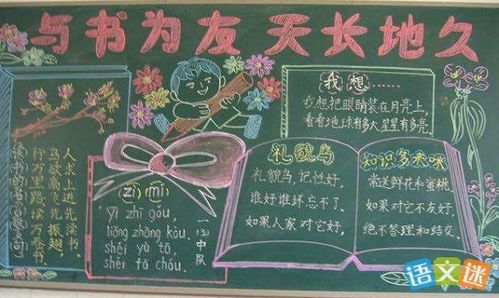 与书为友 天长地久
人求上进先读书。
鸟欲高飞先振翅，
行万里路读万卷书
zì mí
yì zhī gǒu,
liǎng zhāng kǒu.
shéi yù tā
shéi fā chóu.
一(3)中队
我想……
我想把眼睛装在月亮上,
看看地球有多大星星有多亮。
礼貌鸟
礼貌鸟,记性好,
谁好谁坏忘不了,
如果人家对它好,
知识多来咪
常送鲜花和蜜桃
如果对它不友好,
绝不答理和结交。
语文迷